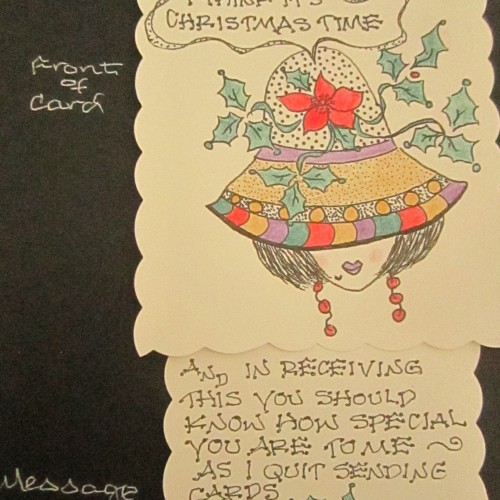 I THINK IT'S
CHRISTMAS TIME
Front
of
Card
AND IN RECEIVING
THIS YOU SHOULD
KNOW HOW SPECIAL
YOU ARE TO ME
AS I QUIT SENDING
CARDS
Message